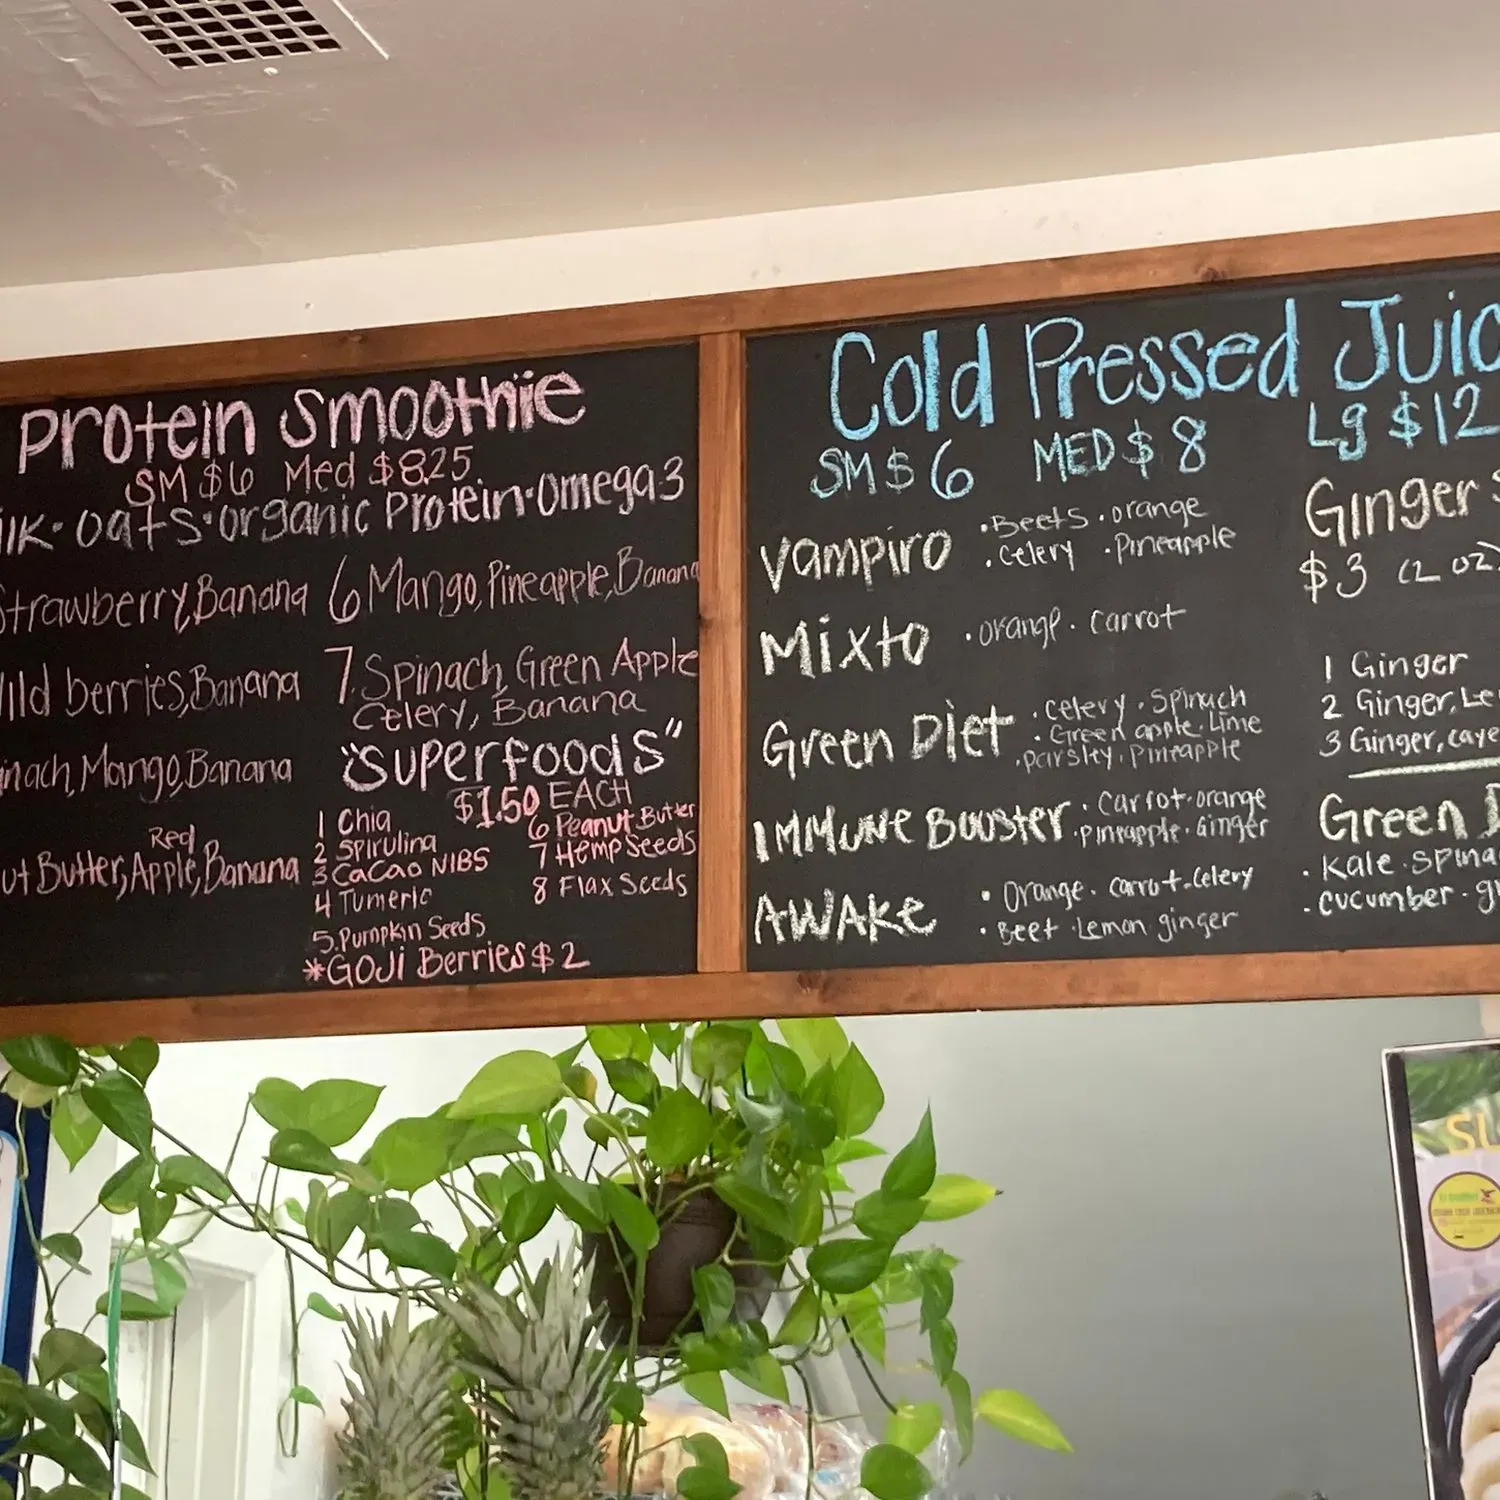 Protein Smoothie
SM $6 Med $8.25
oats · organic Protein · Omega 3
Strawberry, Banana
berries, Banana
Mango, Banana
Red
Butter, Apple, Banana
6 Mango, Pineapple, Banana
7 Spinach, Green Apple
Celery, Banana
"Superfoods"
$1.50 EACH
1 Chia
2 Spirulina
3 CaCao NIBS
4 Tumeric
5. Pumpkin Seeds
6 Peanut Butter
7 Hemp Seeds
8 Flax Seeds
*GOJi Berries $2
Cold Pressed
SM $6 MED $8 Lg $12
Vampiro · Beets · orange
· celery · Pineapple
Mixto · orange · carrot
Green Diet · celery · Spinach
· Green apple · Lime
· parsley · pineapple
IMMUNE BOOSTER · carrot · orange
· pineapple · Ginger
AWAKE · Orange · carrot · celery
· Beet · Lemon ginger
Ginger
$3 (2 oz)
1 Ginger
2 Ginger,
3 Ginger,
Green
· Kale
· cucumber